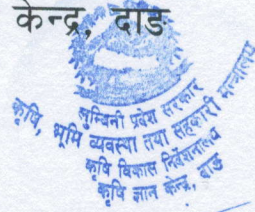 केन्द्र, दाङ
लुम्बिनी प्रदेश सरकार
कृषि, भूमि व्यवस्था तथा सहकारी मन्त्रालय
कृषि विकास निर्देशनालय
कृषि ज्ञान केन्द्र, दाङ